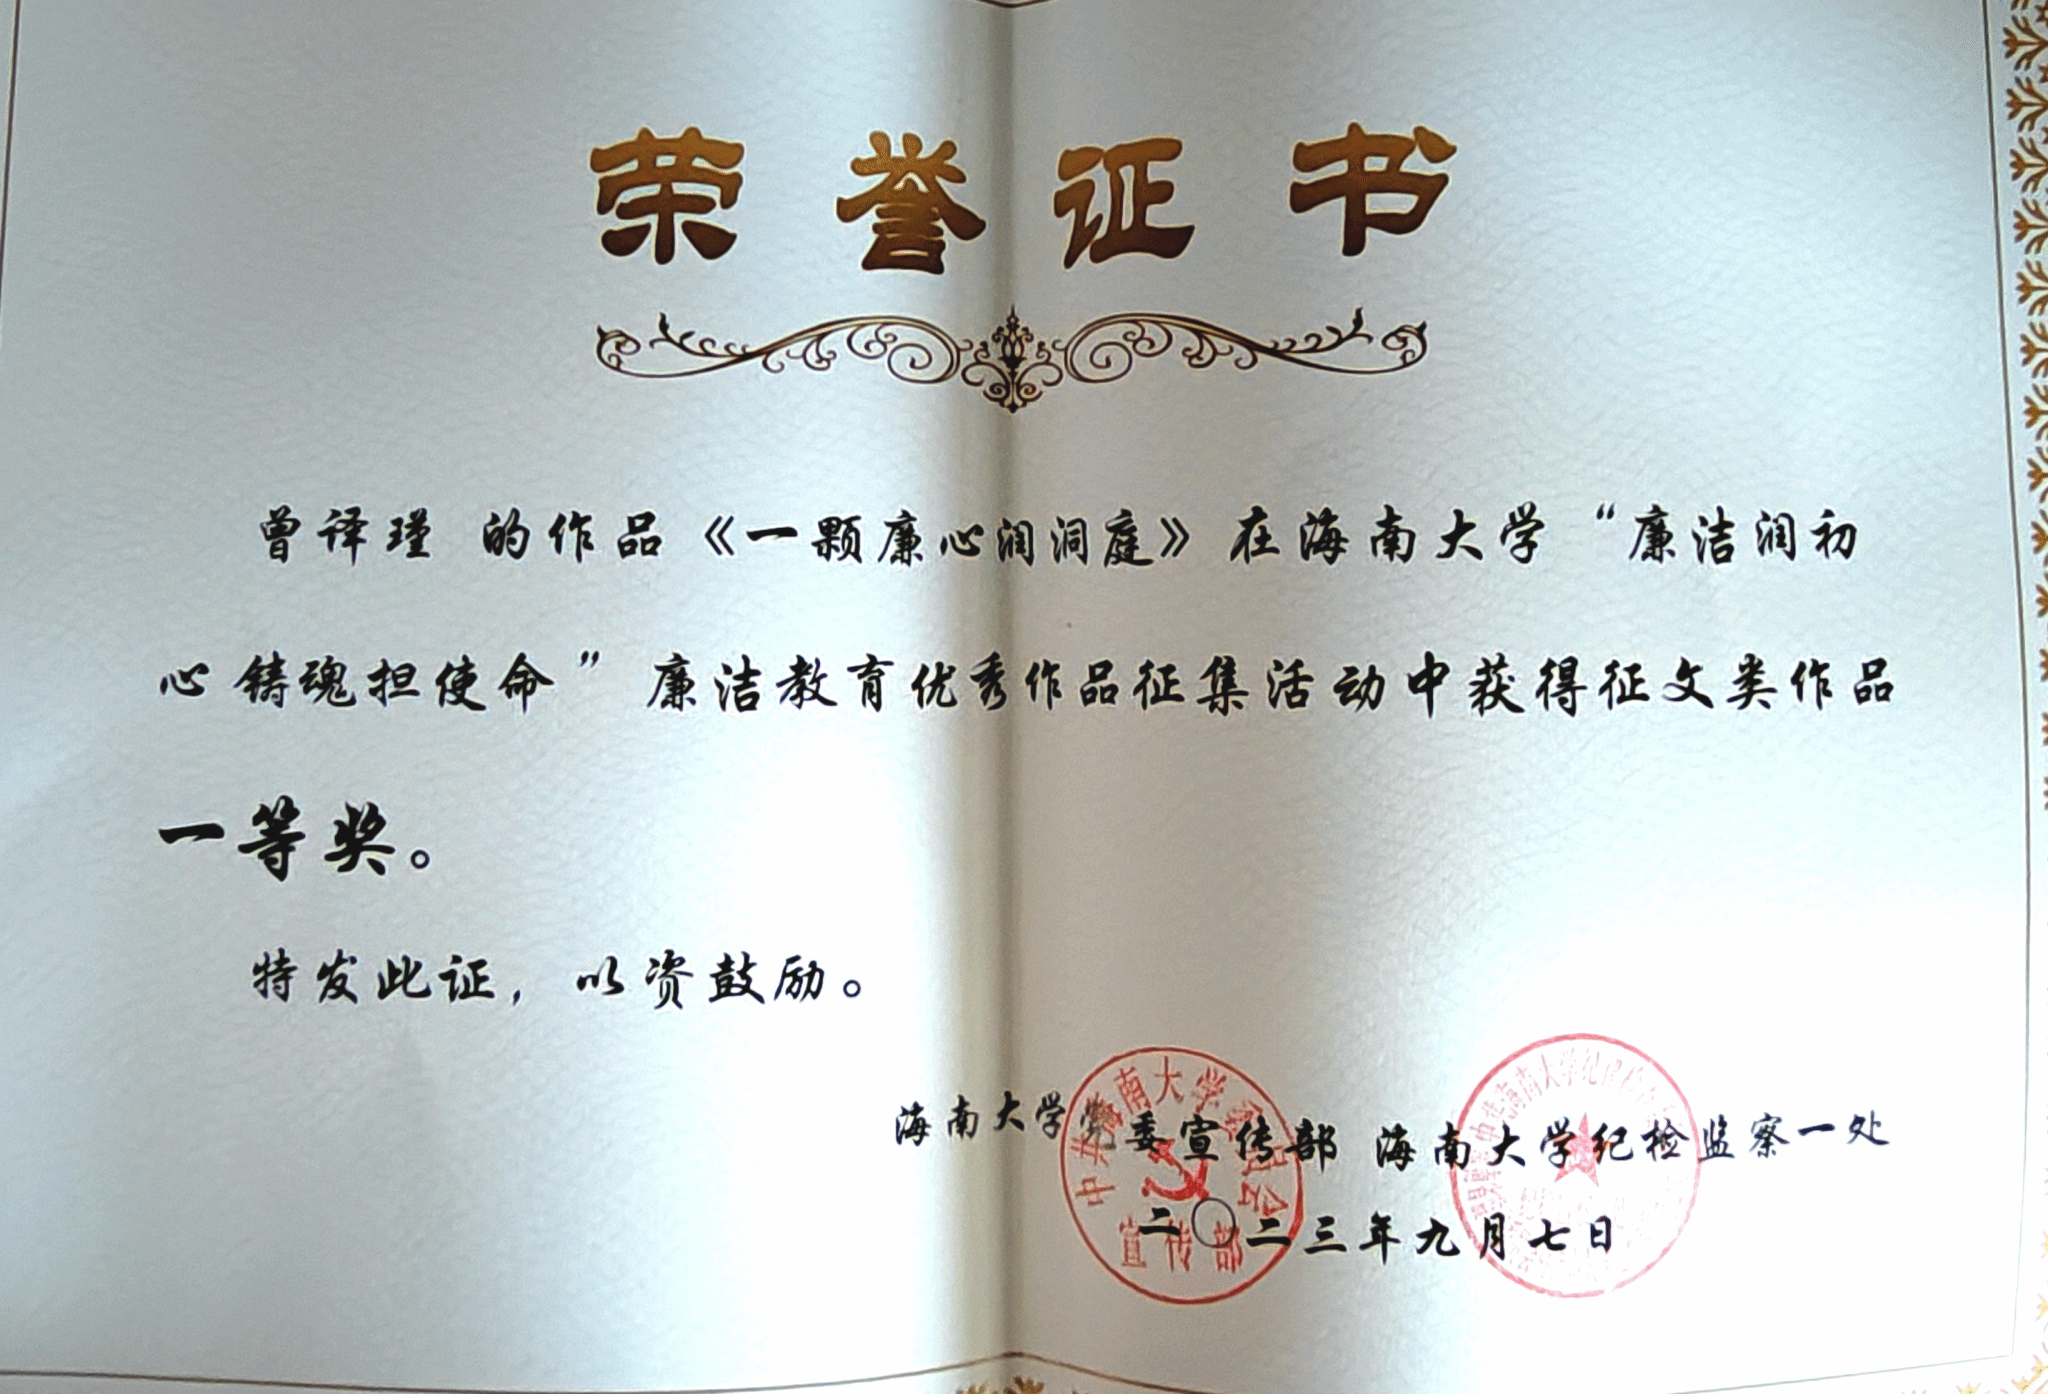 荣誉证书
曾译瑾 的作品《一颗廉心润洞庭》在海南大学“廉洁润初
心 铸魂担使命”廉洁教育优秀作品征集活动中获得征文类作品
一等奖。
特发此证，以资鼓励。
海南大学党委宣传部 海南大学纪检监察一处
二〇二三年九月七日
中共海南大学委员会
宣传部
海南大学纪律检